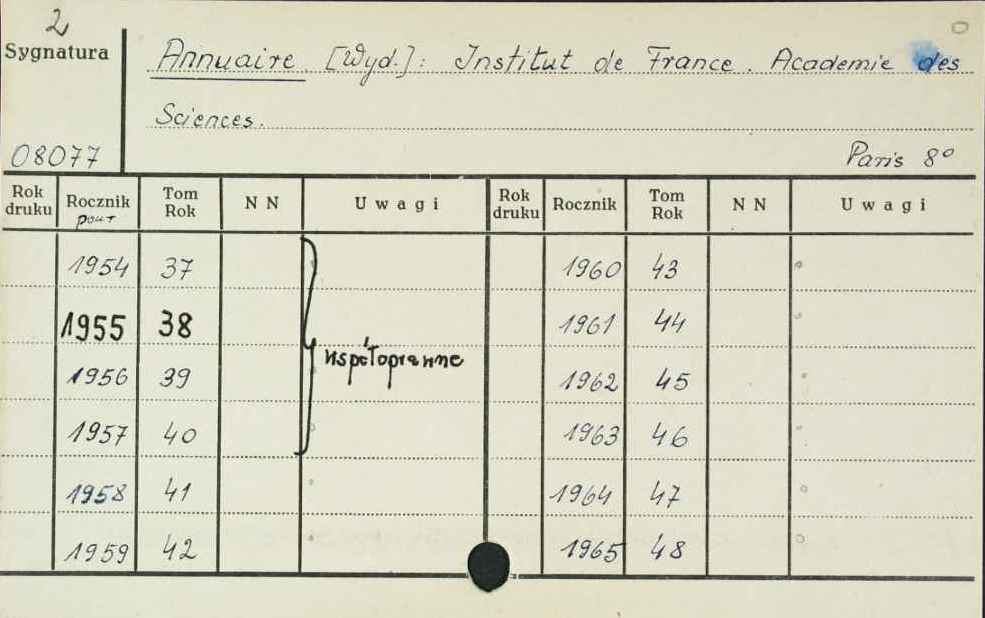 2
Sygnatura
Annuaire. [Wyd.]: Institut de France. Academie des
Sciences.
08077
Paris 8°
Rok druku Rocznik pour Tom Rok NN Uwagi Rok druku Rocznik Tom Rok NN Uwagi
1954 37 1960 43
1955 38 1961 44
współoprawne
1956 39 1962 45
1957 40 1963 46
1958 41 1964 47
1959 42 1965 48